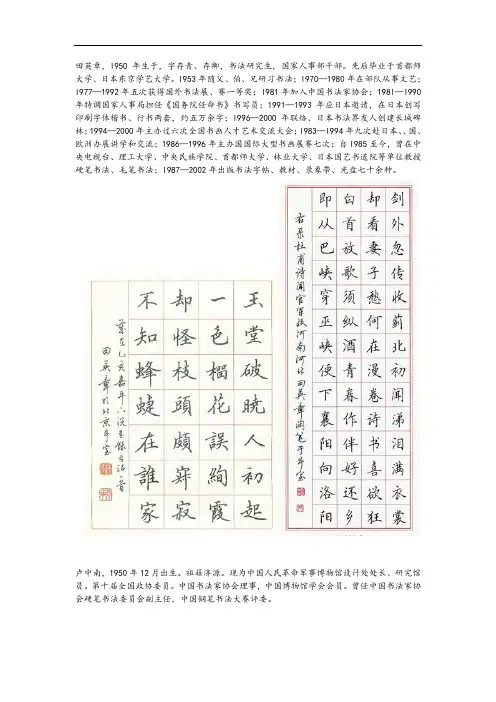 田英章，1950 年生于，字存青、存卿，书法研究生，国家人事部干部。先后毕业于首都师
大学、日本东京学艺大学。1953年随父、伯、兄研习书法；1970—1980年在部队从事文艺；
1977—1992年五次获得国外书法展、赛一等奖；1981年加入中国书法家协会；1981—1990
年特调国家人事局担任《国务院任命书》书写员；1991—1993 年应日本邀请，在日本创写
印刷字体楷书、行书两套，约五万余字；1996—2000 年联络、日本书法界友人创建长城碑
林；1994—2000年主办过六次全国书画人才艺术交流大会；1983—1994年九次赴日本、、国、
欧洲办展讲学和交流；1986—1996年主办国国际大型书画展赛七次；自1985至今，曾在中
央电视台、理工大学、中央民族学院、首都师大学、林业大学、日本国艺书道院等单位教授
硬笔书法、毛笔书法；1987—2002年出版书法字帖、教材、录象带、光盘七十余种。
剑外忽传收蓟北初闻涕泪满衣裳
却看妻子愁何在漫卷诗书喜欲狂
白首放歌须纵酒青春作伴好还乡
即从巴峡穿巫峡便下襄阳向洛阳
右录杜甫诗闻官军收河南河北田英章
玉堂破晓人初起
一色桐花误绚霞
却怪枝頭頗寂寂
不知蜂蜨在誰家
田英章於北京
卢中南，1950年12月出生。祖籍济源。现为中国人民革命军事博物馆设计处处长、研究馆
员。第十届全国政协委员。中国书法家协会理事，中国博物馆学会会员。曾任中国书法家协
会硬笔书法委员会副主任，中国钢笔书法大赛评委。